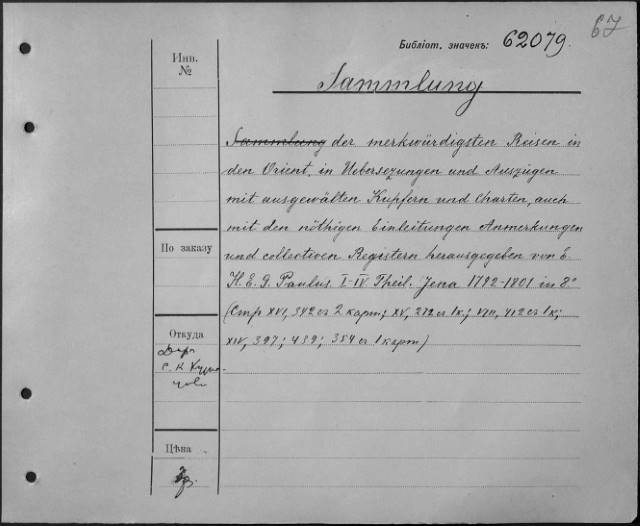 67
Библіот. значекъ: 62079.
Sammlung
Инв.
№
Sammlung der merkwürdigsten Reisen in
den Orient, in Uebersezungen und Auszügen
mit ausgewälten Kupfern und Charten, auch
mit den nöthigen Einleitungen Anmerkungen
und collectiven Registern herausgegeben von
H. E. G. Paulus. I-IV Theil. Jena 1792-1801 in 8°
(Стр XVI, 342 с 2 карт; XV, 272 с 1к.; VIII, 412 с 1к;
XIV, 397; 439; 384 с 1 карт)
По заказу
Откуда
Дар
Цѣна